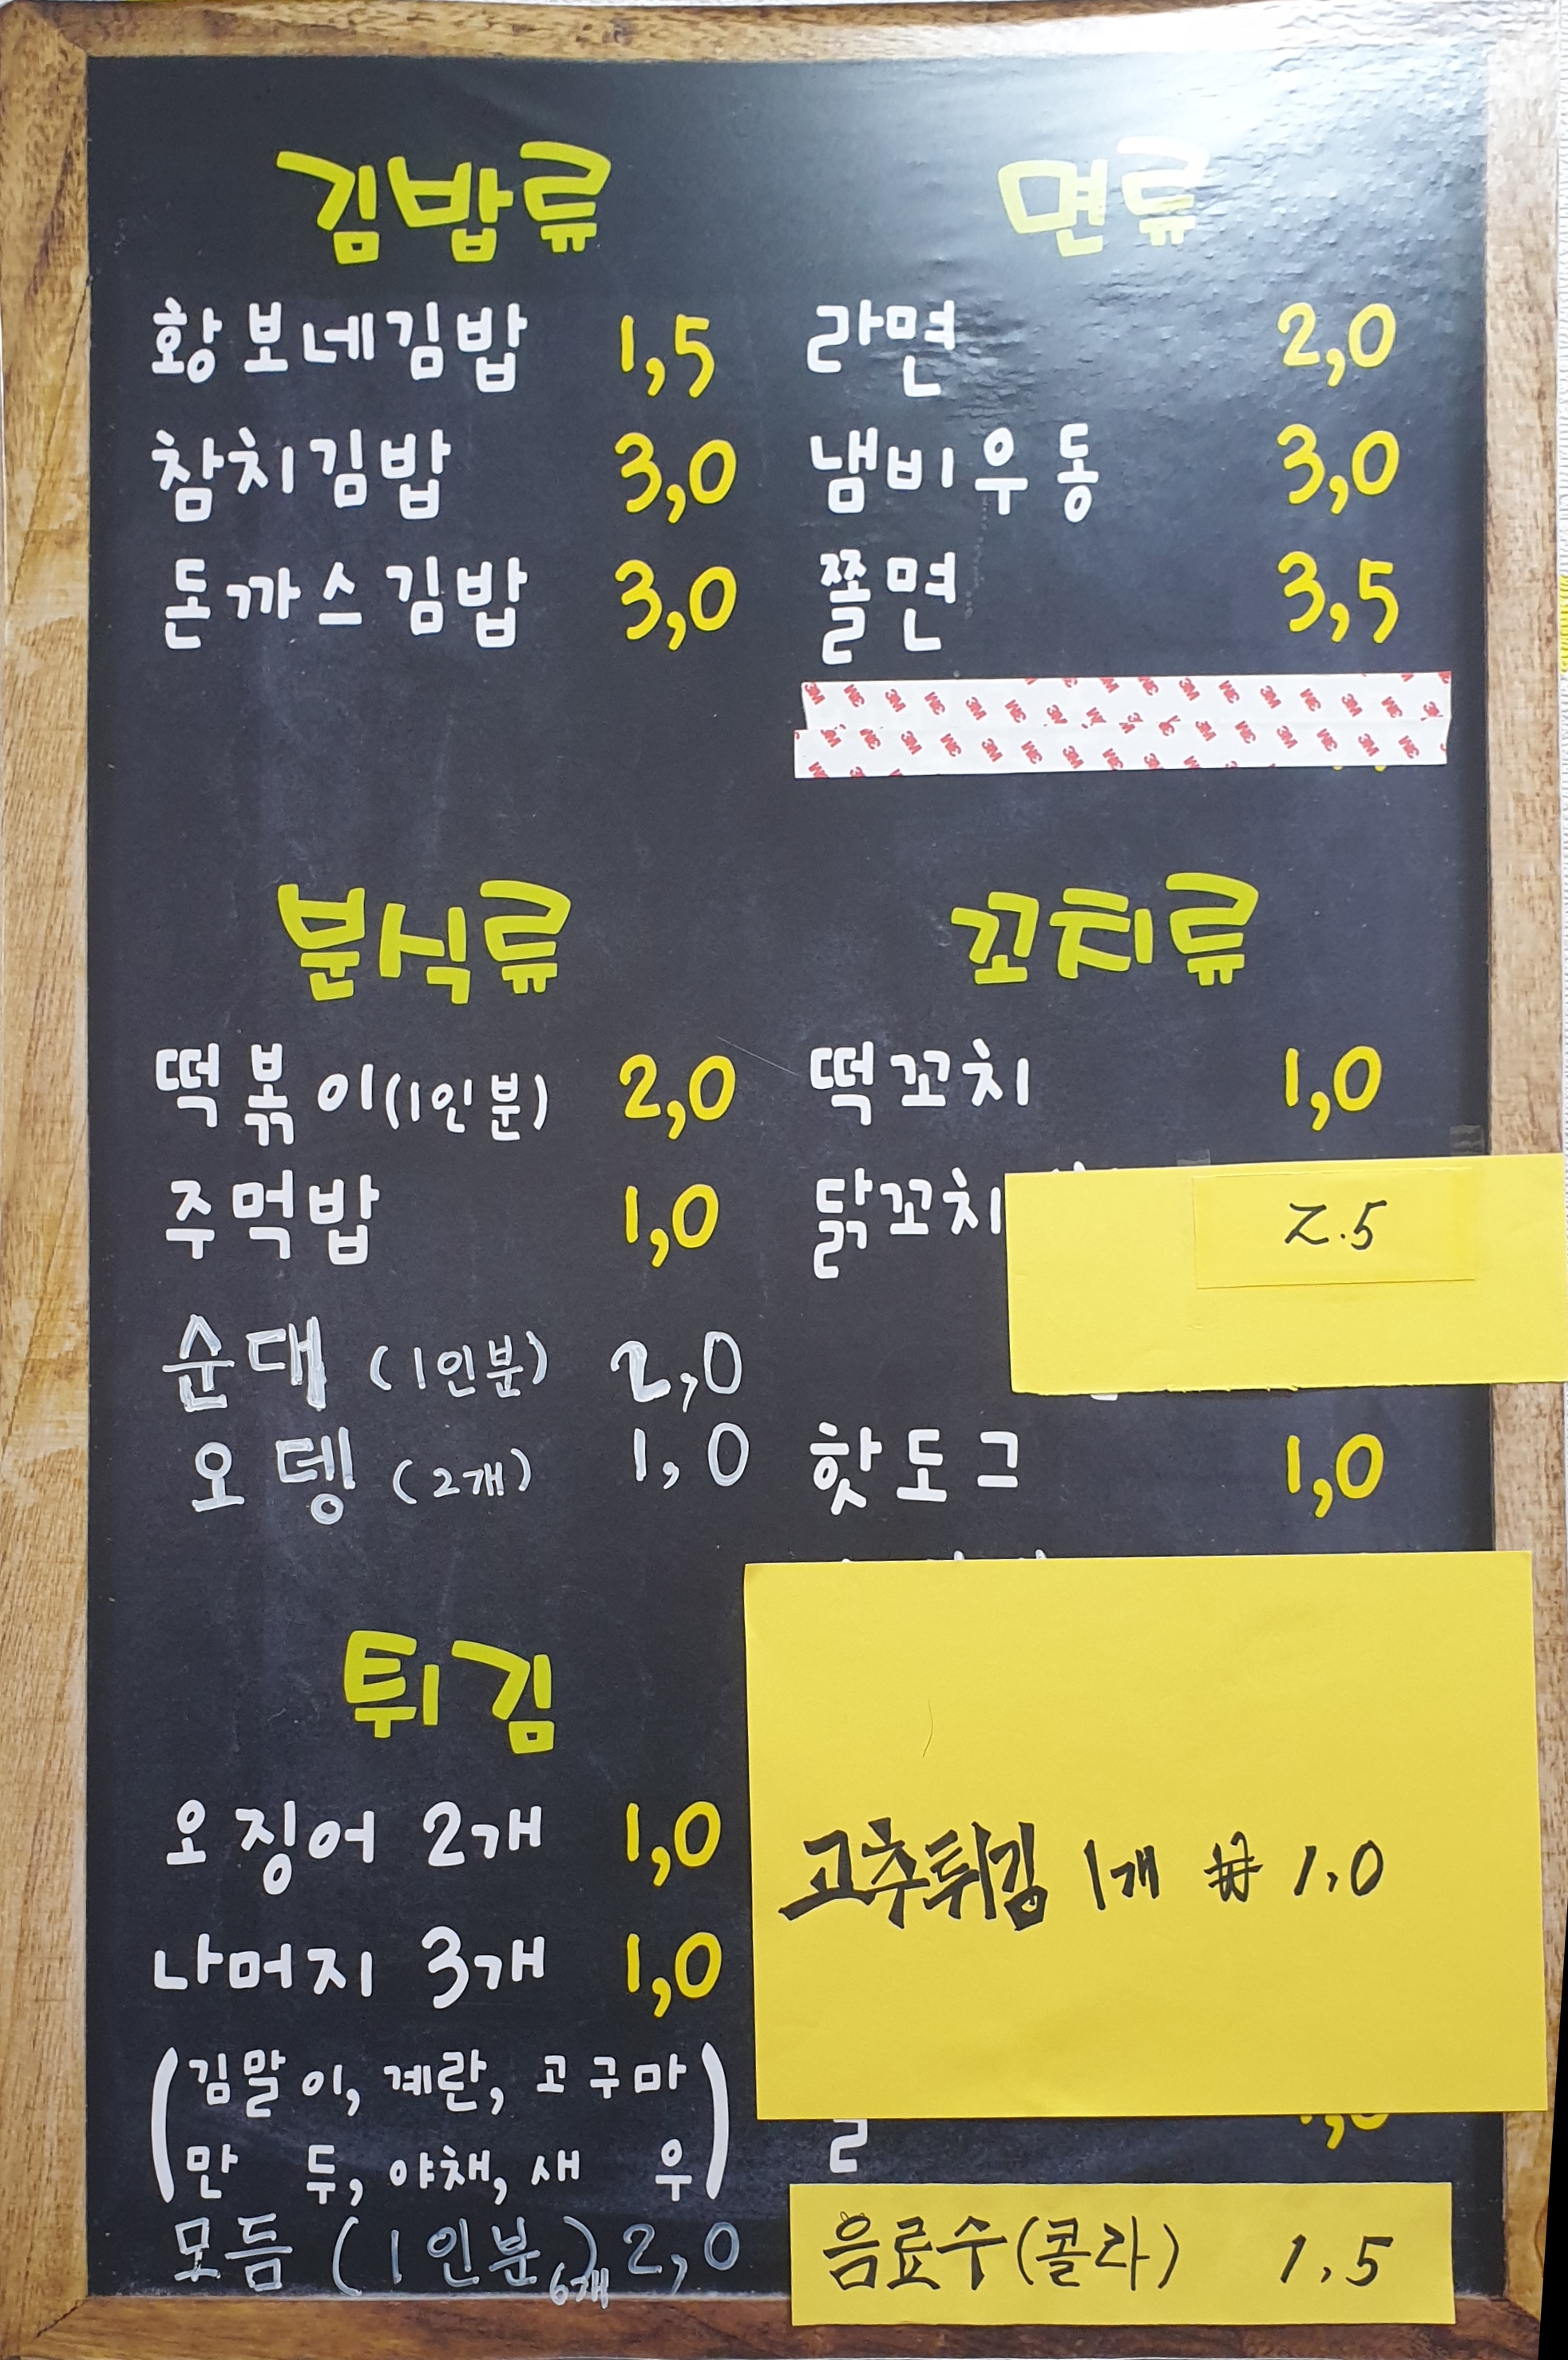 김밥류
황보네김밥 1,5
참치김밥 3,0
돈까스김밥 3,0
면류
라면 2,0
냄비우동 3,0
쫄면 3,5
분식류
떡볶이(1인분) 2,0
주먹밥 1,0
순대 (1인분) 2,0
오뎅 (2개) 1,0
꼬치류
떡꼬치 1,0
닭꼬치 2.5
핫도그 1,0
튀김
오징어 2개 1,0
나머지 3개 1,0
(김말이, 계란, 고구마
만두, 야채, 새우)
모듬 (1인분) 2,0
6개
고추튀김 1개 ₩ 1,0
음료수(콜라) 1.5